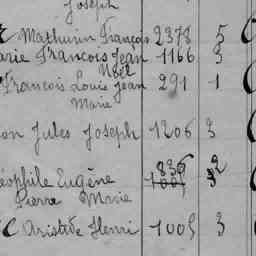 Joseph
Mathurin François 2378 5
arie François Jean 1166 3
Noël
François Louis Jean 291 1
Marie
on Jules Joseph 1206 3
836 2
éophile Eugène 1005 3
Pierre Marie
C Aristide Henri 1005 3